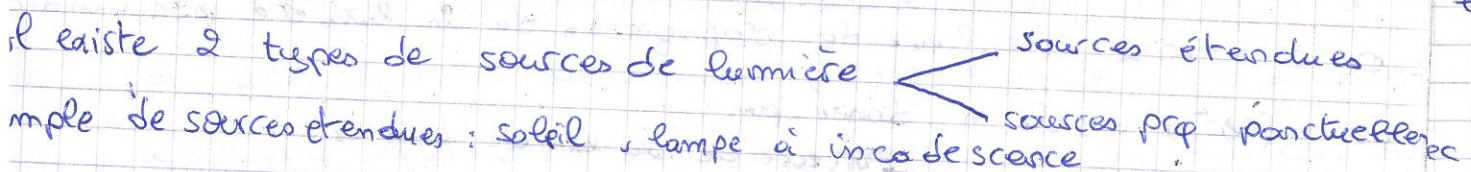 il existe 2 types de sources de lumière
sources étendues
sources pro ponctuelles
mple de sources etendues : soleil, lampe à incadescence